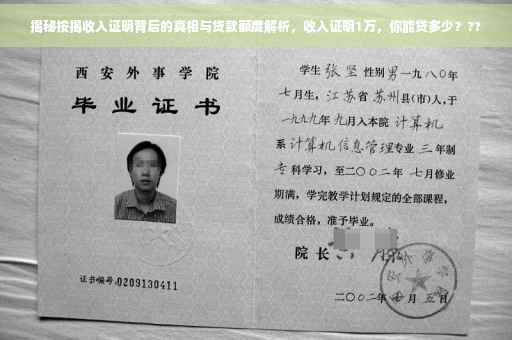 揭秘按揭收入证明背后的真相与贷款额度解析，收入证明1万，你能贷多少？??
西安外事学院
毕业证书
证书编号:0209130411
学生 张坚 性别 男 一九八〇年
七月生，江苏省 苏州 县(市)人，于
一九九九年 九月入本院 计算机
系 计算机信息管理专业 三 年制
专 科学习，至二〇〇二年 七月修业
期满，学完教学计划规定的全部课程，
成绩合格，准予毕业。
院长
二〇〇二年 月五日